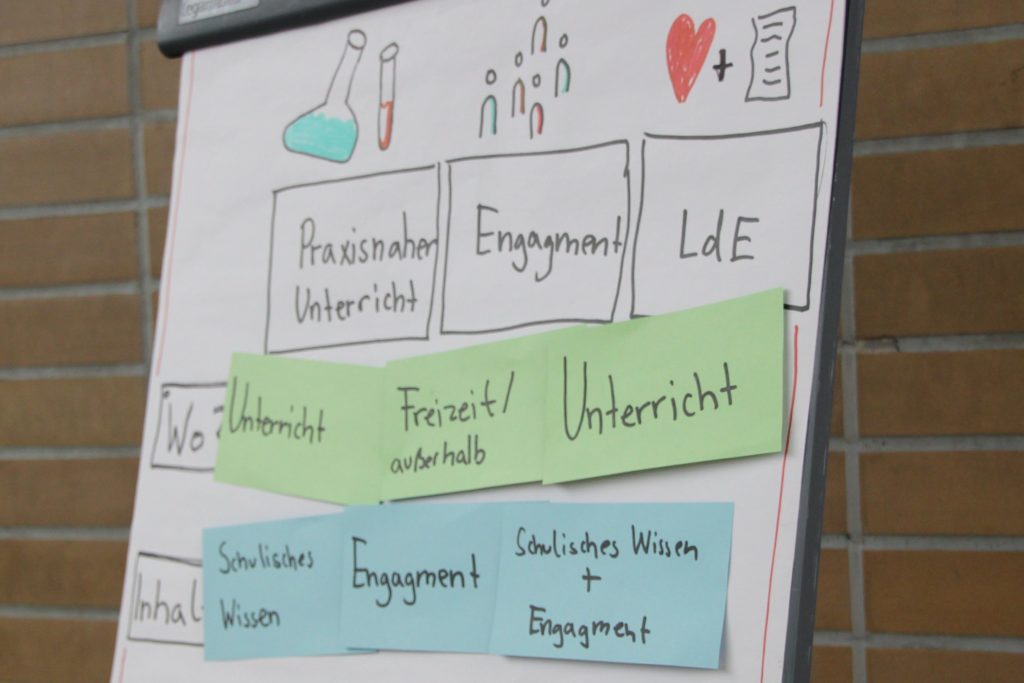 Praxisnaher
Unterricht
Engagment
LdE
Wo?
Unterricht
Freizeit/
außerhalb
Unterricht
Inhal
Schulisches
Wissen
Engagment
Schulisches Wissen
+
Engagment